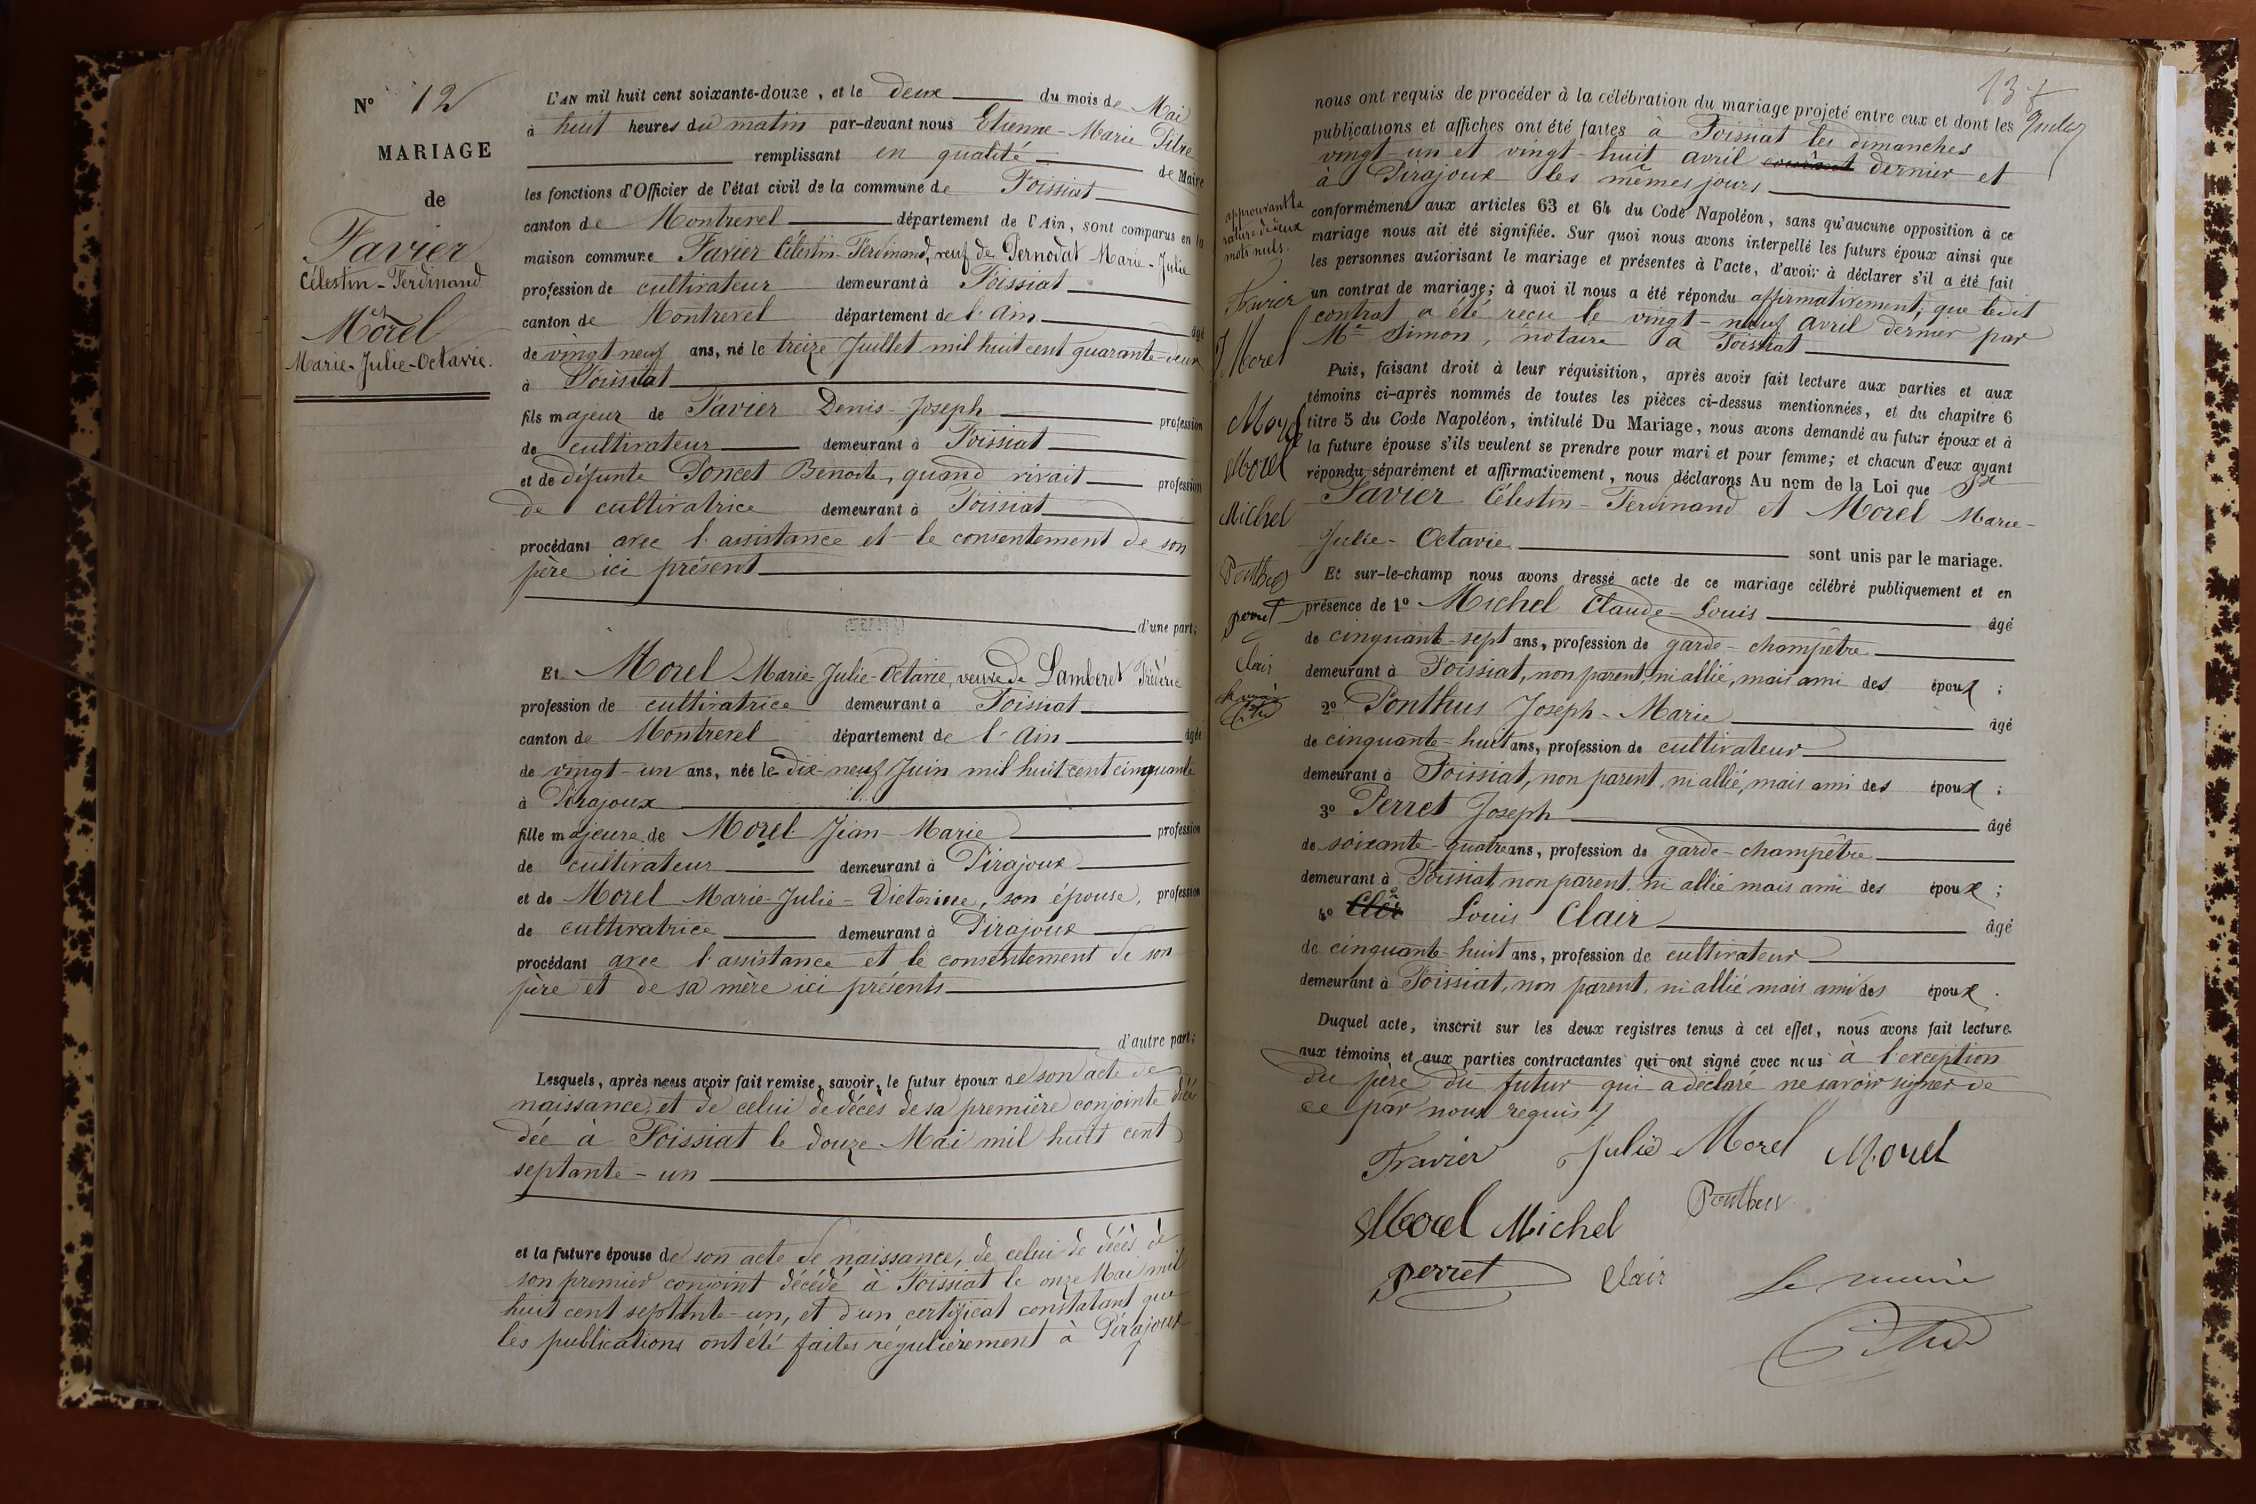 N° 12
MARIAGE
de
Favier
Célestin-Ferdinand
et
Morel
Marie-Julie-Octavie.
L'AN mil huit cent soixante-douze, et le deux du mois de Mai
à huit heures du matin par-devant nous Etienne-Marie Pitre
remplissant en qualité de Maire
les fonctions d'Officier de l'état civil de la commune de Foissiat
canton de Montrevel département de l'Ain, sont comparus en la
maison commune Favier Célestin-Ferdinand, veuf de Pernodat Marie-Julie
profession de cultivateur demeurant à Foissiat
canton de Montrevel département de l'Ain âgé
de vingt neuf ans, né le treize Juillet mil huit cent quarante-deux
à Foissiat
fils majeur de Favier Denis-Joseph profession
de cultivateur demeurant à Foissiat
et de défunte Poncet Benoite, quand vivait profession
de cultivatrice demeurant à Foissiat
procédant avec l'assistance et le consentement de son
père ici présent
d'une part;
Et Morel Marie-Julie-Octavie, veuve de Lamberet Fréderic
profession de cultivatrice demeurant à Foissiat
canton de Montrevel département de l'Ain âgée
de vingt-un ans, née le dix-neuf Juin mil huit cent cinquante
à Pirajoux
fille majeure de Morel Jean-Marie profession
de cultivateur demeurant à Pirajoux
et de Morel Marie-Julie-Victorine, son épouse, profession
de cultivatrice demeurant à Pirajoux
procédant avec l'assistance et le consentement de son
père et de sa mère ici présents
d'autre part;
Lesquels, après nous avoir fait remise, savoir, le futur époux de son acte de
naissance, et de celui de décès de sa première conjointe décé
dée à Foissiat le douze Mai mil huit cent
septante-un
et la future épouse de son acte de naissance, de celui de décès de
son premier conjoint décédé à Foissiat le onze Mai mil
huit cent septante-un, et d'un certificat constatant que
les publications ont été faites régulièrement à Pirajoux
nous ont requis de procéder à la célébration du mariage projeté entre eux et dont les
publications et affiches ont été faites à Foissiat les dimanches
vingt un et vingt-huit avril courant dernier et
à Pirajoux les mêmes jours
conformément aux articles 63 et 64 du Code Napoléon, sans qu'aucune opposition à ce
mariage nous ait été signifiée. Sur quoi nous avons interpellé les futurs époux ainsi que
les personnes autorisant le mariage et présentes à l'acte, d'avoir à déclarer s'il a été fait
un contrat de mariage; à quoi il nous a été répondu affirmativement, que ledit
contrat a été reçu le vingt-neuf avril dernier par
Me Simon, notaire à Foissiat
Puis, faisant droit à leur réquisition, après avoir fait lecture aux parties et aux
témoins ci-après nommés de toutes les pièces ci-dessus mentionnées, et du chapitre 6
titre 5 du Code Napoléon, intitulé Du Mariage, nous avons demandé au futur époux et à
la future épouse s'ils veulent se prendre pour mari et pour femme; et chacun d'eux ayant
répondu séparément et affirmativement, nous déclarons Au nom de la Loi que
Favier Célestin-Ferdinand et Morel Marie-
Julie-Octavie sont unis par le mariage.
Et sur-le-champ nous avons dressé acte de ce mariage célébré publiquement et en
présence de 1° Michel Claude-Louis âgé
de cinquante-sept ans, profession de garde-champêtre
demeurant à Foissiat, non parent, ni allié, mais ami des époux ;
2° Ponthus Joseph-Marie âgé
de cinquante-huit ans, profession de cultivateur
demeurant à Foissiat, non parent, ni allié, mais ami des époux ;
3° Perret Joseph âgé
de soixante-quatre ans, profession de garde-champêtre
demeurant à Foissiat, non parent, ni allié mais ami des époux ;
4° Louis Clair âgé
de cinquante-huit ans, profession de cultivateur
demeurant à Foissiat, non parent, ni allié mais ami des époux.
Duquel acte, inscrit sur les deux registres tenus à cet effet, nous avons fait lecture
aux témoins et aux parties contractantes qui ont signé avec nous à l'exception
du père du futur qui a déclaré ne savoir signer de
ce par nous requis
Favier Julie Morel Morel
Morel Michel Ponthus
Perret Clair Le maire
Pitre
approuvant la
rature de deux
mots nuls.
Favier
J. Morel
Morel
Morel
Michel
Ponthus
perret
Clair